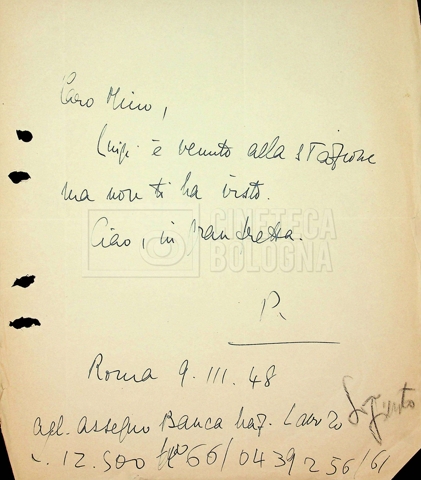 Caro Mino,
Luigi è venuto alla stazione
ma non ti ha visto.
Ciao, in gran fretta.
R.
Roma 9. III. 48
all. assegno Banca Naz. Lavoro
L. 12.500 66/0439256/61
CINETECA
BOLOGNA